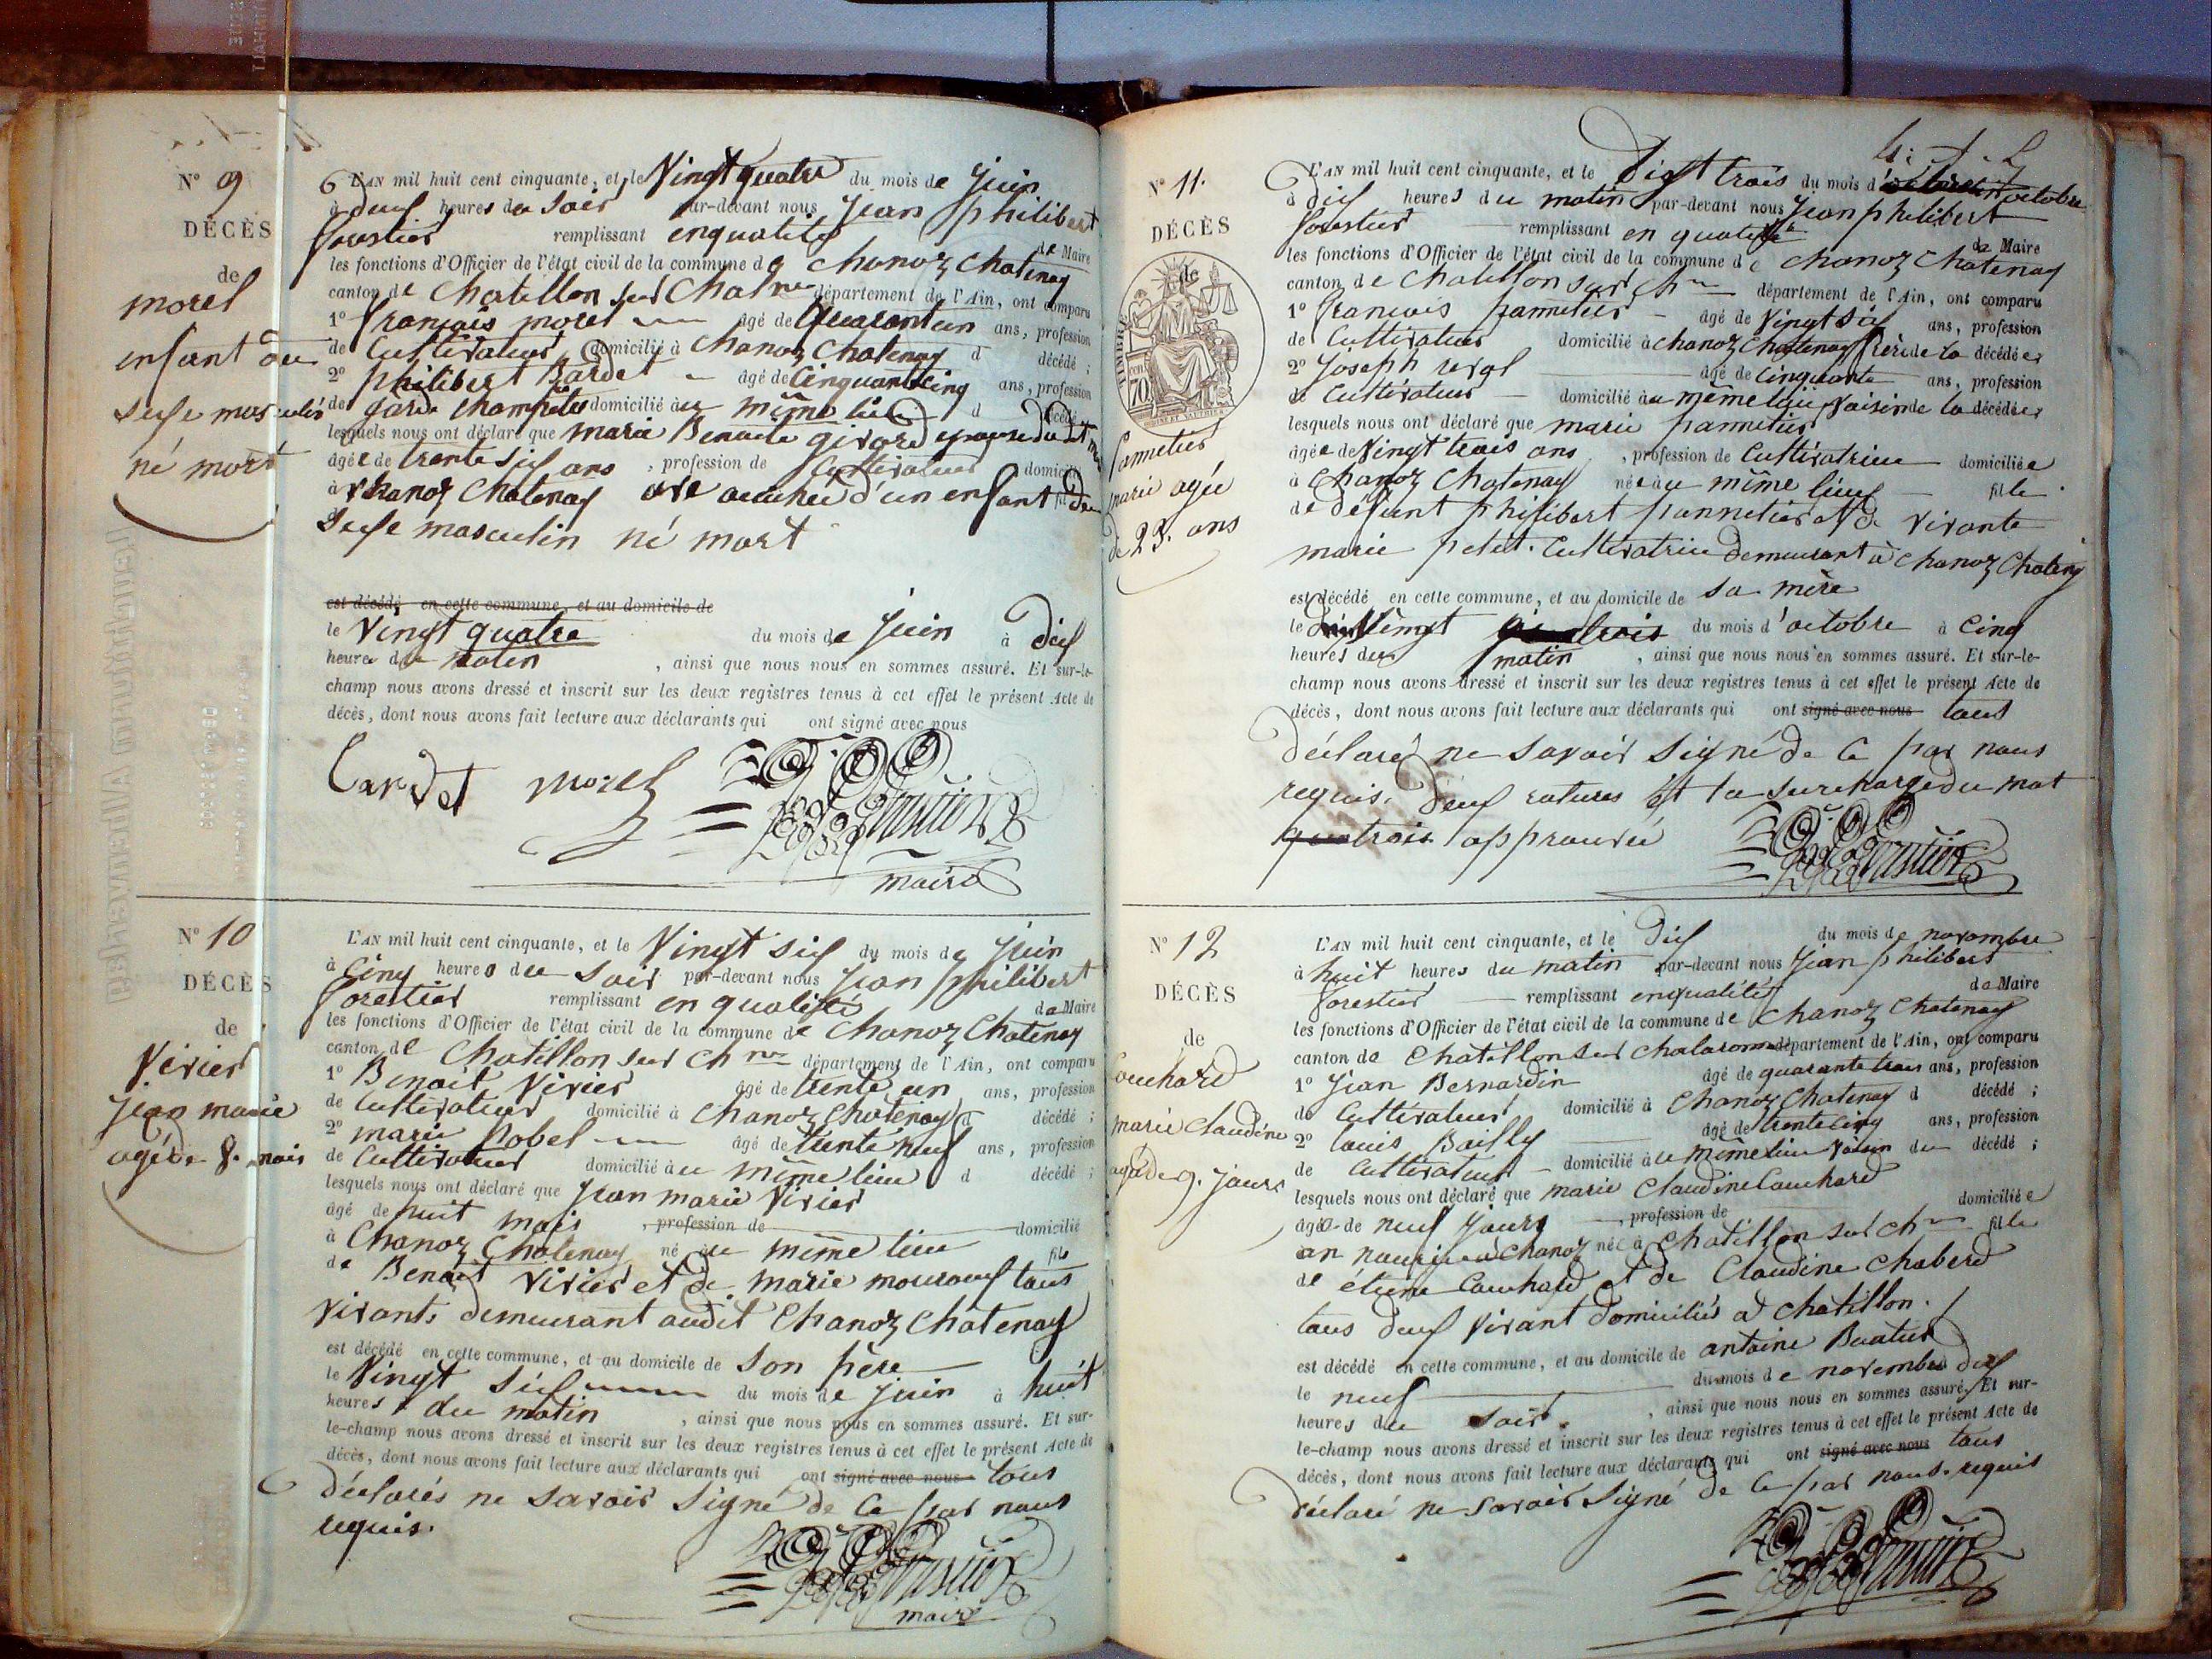 N° 9
DÉCÈS
de
morel
enfant du
sexe masculin
né mort
L'AN mil huit cent cinquante, et le Vingt quatre du mois de Juin
à deux heures du Soir par-devant nous Jean philibert
forestier remplissant enqualité de Maire
les fonctions d'Officier de l'état civil de la commune de Chanoz Chatenay
canton de Chatillon sur Chalne département de l'Ain, ont comparu
1° françois morel âgé de Quarantun ans, profession
de Cultivateur domicilié à Chanoz Chatenay d décédé ;
2° philibert Bardet âgé de Cinquantecinq ans, profession
de garde champêtre domicilié au même lieu d décédé
lesquels nous ont déclaré que marie Benoite girard epouse dudit
âgée de trente six ans , profession de Cultivateur domicilié
à Chanoz Chatenay est accouchée d'un enfant du
Sexe masculin né mort
est décédé en cette commune, et au domicile de
le Vingt quatre du mois de Juin à dix
heures du matin , ainsi que nous nous en sommes assuré. Et sur-le-
champ nous avons dressé et inscrit sur les deux registres tenus à cet effet le présent Acte de
décès, dont nous avons fait lecture aux déclarants qui ont signé avec nous
Bardet morel forestier
maire
N° 10
DÉCÈS
de
Virier
Jean marie
agé de 8. mois
L'AN mil huit cent cinquante, et le Vingt Six du mois de Juin
à Cinq heures du Soir par-devant nous Jean philibert
forestier remplissant en qualité de Maire
les fonctions d'Officier de l'état civil de la commune de Chanoz Chatenay
canton de Chatillon sur Chne département de l'Ain, ont comparu
1° Benoit Virier âgé de trente un ans, profession
de Cultivateur domicilié à Chanoz Chatenay d décédé ;
2° marie Nobel âgé de trente neuf ans, profession
de Cultivateur domicilié au même lieu d décédé ;
lesquels nous ont déclaré que Jean marie Virier
âgé de huit mois , profession de domicilié
à Chanoz Chatenay né au même lieu fils
de Benoit Virier et de marie tous
Vivants demeurant audit Chanoz Chatenay
est décédé en cette commune, et au domicile de Son père
le Vingt Six du mois de Juin à huit
heures du matin , ainsi que nous nous en sommes assuré. Et sur-
le-champ nous avons dressé et inscrit sur les deux registres tenus à cet effet le présent Acte de
décès, dont nous avons fait lecture aux déclarants qui ont signé avec nous tous
déclarés ne Savoir Signé de Ce par nous
requis.
forestier
maire
N° 11.
DÉCÈS
de
TIMBRE
70
pannetier
marie agée
de 23. ans
L'AN mil huit cent cinquante, et le Vingt trois du mois d'octobre
à dix heures du matin par-devant nous Jean philibert
forestier remplissant en qualité de Maire
les fonctions d'Officier de l'état civil de la commune de Chanoz Chatenay
canton de Chatillon sur Chne département de l'Ain, ont comparu
1° francois pannetier âgé de Vingt Six ans, profession
de Cultivateur domicilié à Chanoz Chatenay frère de la décédée
2° Joseph âgé de Cinquante ans, profession
de Cultivateur domicilié au même lieu Voisin de la décédée
lesquels nous ont déclaré que marie pannetier
âgée de Vingt trois ans , profession de Cultivatrice domiciliée
à Chanoz Chatenay née au même lieu fille
de défunt philibert pannetier et de Vivante
marie petit. Cultivatrice demeurant à Chanoz Chateny
est décédé en cette commune, et au domicile de Sa mère
le Vingt trois du mois d'octobre à Cinq
heures du matin , ainsi que nous nous en sommes assuré. Et sur-le-
champ nous avons dressé et inscrit sur les deux registres tenus à cet effet le présent Acte de
décès, dont nous avons fait lecture aux déclarants qui ont signé avec nous tous
déclaré ne Savoir Signé de Ce par nous
requis. deux ratures et la Surcharge du mot
trois approuvée
forestier
N° 12
DÉCÈS
de
Couchard
marie Claudine
agé de 9. Jours
L'AN mil huit cent cinquante, et le dix du mois de novembre
à huit heures du matin par-devant nous Jean philibert
forestier remplissant enqualité de Maire
les fonctions d'Officier de l'état civil de la commune de Chanoz Chatenay
canton de Chatillon sur Chalaronne département de l'Ain, ont comparu
1° Jean Bernardin âgé de quarante trois ans, profession
de Cultivateur domicilié à Chanoz Chatenay d décédé ;
2° Louis Bailly âgé de trente Cinq ans, profession
de Cultivateur domicilié au même lieu Voisin du décédé ;
lesquels nous ont déclaré que marie Claudine Couchard
âgée de neuf Jours , profession de domiciliée
en nourrice à Chanoz née à Chatillon sur Chne fille
de étienne Couchard et de Claudine Chaberd
tous deux Vivant domiciliés à Chatillon.
est décédé en cette commune, et au domicile de antoine Buatier
le neuf du mois de novembre dix
heures du Soir. , ainsi que nous nous en sommes assuré. Et sur-
le-champ nous avons dressé et inscrit sur les deux registres tenus à cet effet le présent Acte de
décès, dont nous avons fait lecture aux déclarants qui ont signé avec nous tous
déclaré ne Savoir Signé de Ce par nous. requis
forestier